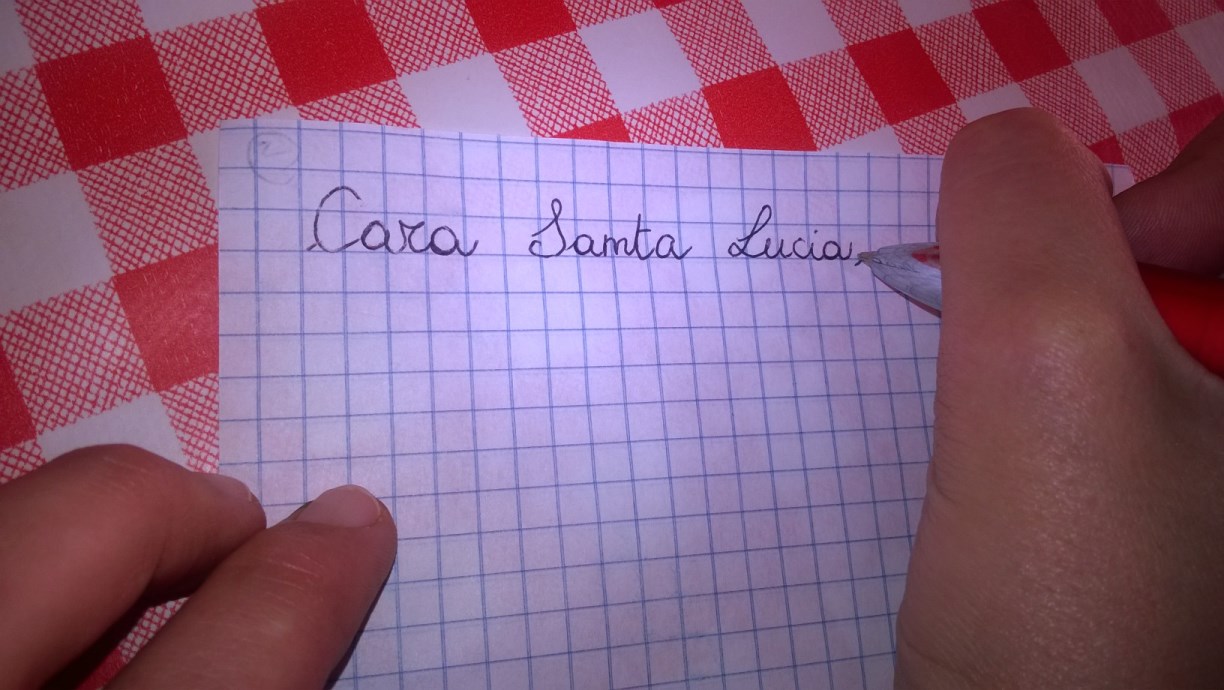 Cara Santa Lucia,